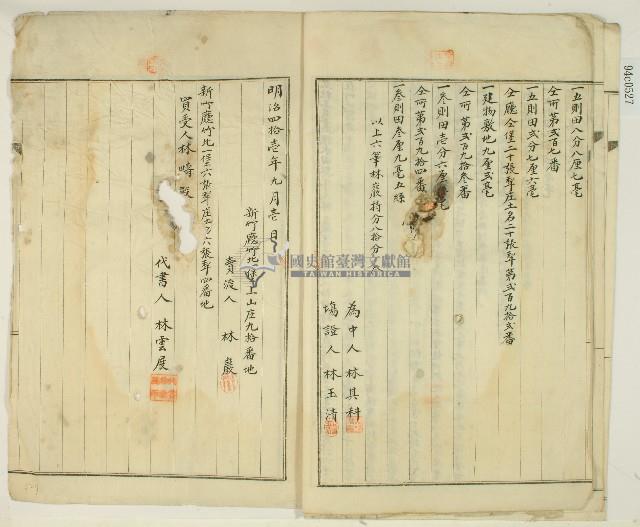 一五則田八分八厘七毫
仝所第弍百七番
一五則田弍分七厘六毫
仝廳仝堡二十張犁庄土名二十張犁第弍百九拾弍番
一建物敷地九厘弍毫
仝所第弍百九拾叁番
一叁則田壱分六厘毫
仝所第弍百九拾四番
一叁則田叁厘九毫五絲
以上六筆林巖持分八拾分
為中人林其科
塲證人林玉清
明治四拾壱年九月壱日
新竹廳竹北一堡上山庄九拾番地
賣渡人林巖
新竹廳竹北一堡六張犁庄土名六張犁四番地
買受人林疇殿
代書人林雲展
國史館臺灣文獻館
TAIWAN HISTORICA
94c0527